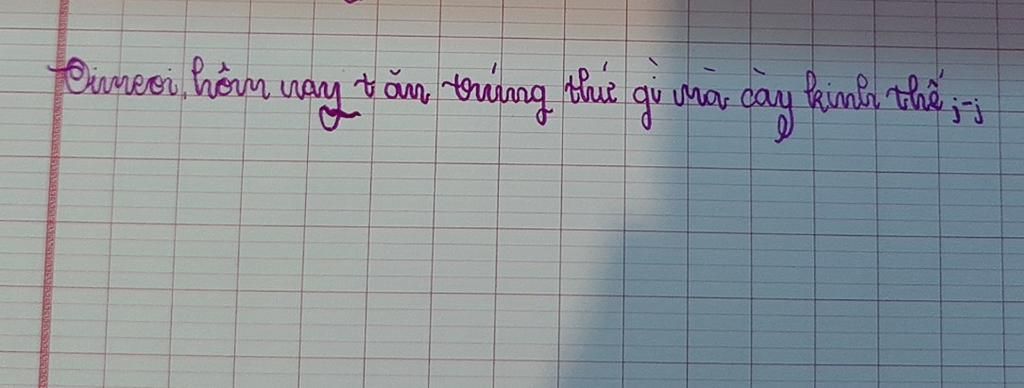 Oimeoi, hôm nay t ăn trúng thứ gì mà cày kinh thế, j-j